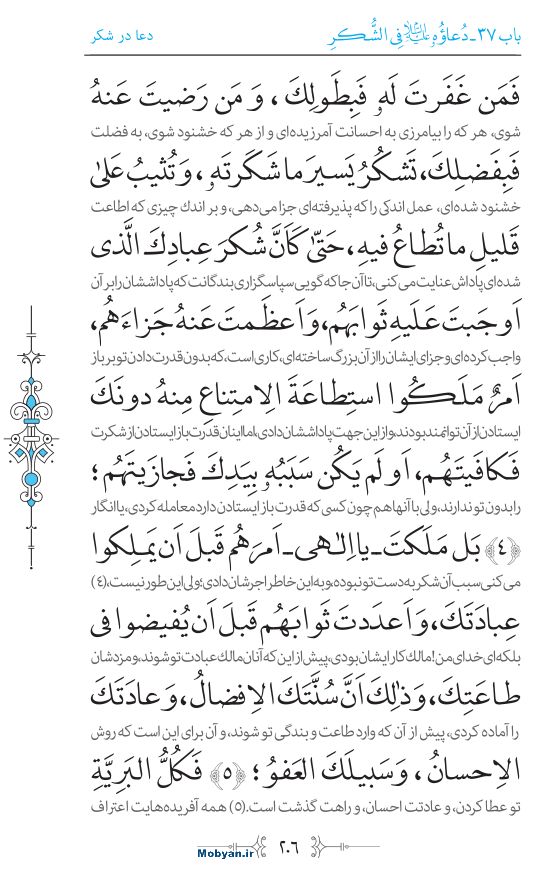 باب ۳۷ - دُعاؤُه علیه‌السلام فِی الشُّکرِ
دعا در شکر
فَمَن غَفَرتَ لَهُ فَبِطَولِكَ، وَ مَن رَضیتَ عَنهُ
شوی، هر که را بیامرزی به احسانت آمرزیده‌ای و از هر که خشنود شوی، به فضلت
فَبِفَضلِكَ، تَشكُرُ یَسیرَ ما شَكَرتَهُ، وَ تُثیبُ عَلیٰ
خشنود شده‌ای، عمل اندکی را که پذیرفته‌ای جزا می‌دهی، و بر اندك چیزی که اطاعت
قَلیلِ ما تُطاعُ فیهِ، حَتّیٰ كَاَنَّ شُكرَ عِبادِكَ الَّذی
شده‌ای پاداش عنایت می‌کنی، تا آن جا که گویی سپاسگزاری بندگانت که پاداششان را بر آن
اَوجَبتَ عَلَیهِ ثَوابَهُم، وَ اَعظَمتَ عَنهُ جَزاءَهُم،
واجب کرده‌ای و جزای ایشان را از آن بزرگ ساخته‌ای، کاری است، که بدون قدرت دادن تو بر باز
اَمرٌ مَلَكُوا استِطاعَةَ الاِمتِناعِ مِنهُ دونَكَ
ایستادن از آن توانمند بودند، و از این جهت پاداششان دادی، اما اینان قدرت باز ایستادن از شکرت
فَكافَیتَهُم، اَو لَم یَكُن سَبَبُهُ بِیَدِكَ فَجازَیتَهُم؛
را بدون تو ندارند، ولی با آنها هم چون کسی که قدرت باز ایستادن دارد معامله کردی، یا انگار
﴿٤﴾ بَل مَلَكتَ ـ یا اِلٰاهی ـ اَمرَهُم قَبلَ اَن یَملِكوا
می‌کنی سبب آن شکر به دست تو نبوده، و به این خاطر اجرشان دادی؛ ولی این طور نیست، (۴)
عِبادَتَكَ، وَ اَعدَدتَ ثَوابَهُم قَبلَ اَن یُفیضوا فی
بلکه ای خدای من! مالك کار ایشان بودی، پیش از این که آنان مالك عبادت تو شوند، و مزدشان
طاعَتِكَ، وَ ذٰلِكَ اَنَّ سُنَّتَكَ الاِفضالُ، وَ عادَتَكَ
را آماده کردی، پیش از آن که وارد طاعت و بندگی تو شوند، و آن برای این است که روش
الاِحسانُ، وَ سَبیلَكَ العَفوُ؛ ﴿٥﴾ فَكُلُّ البَرِیَّةِ
تو عطا کردن، و عادتت احسان، و راهت گذشت است. (۵) همه آفریده‌هایت اعتراف
۲۰۶
Mobyan.ir